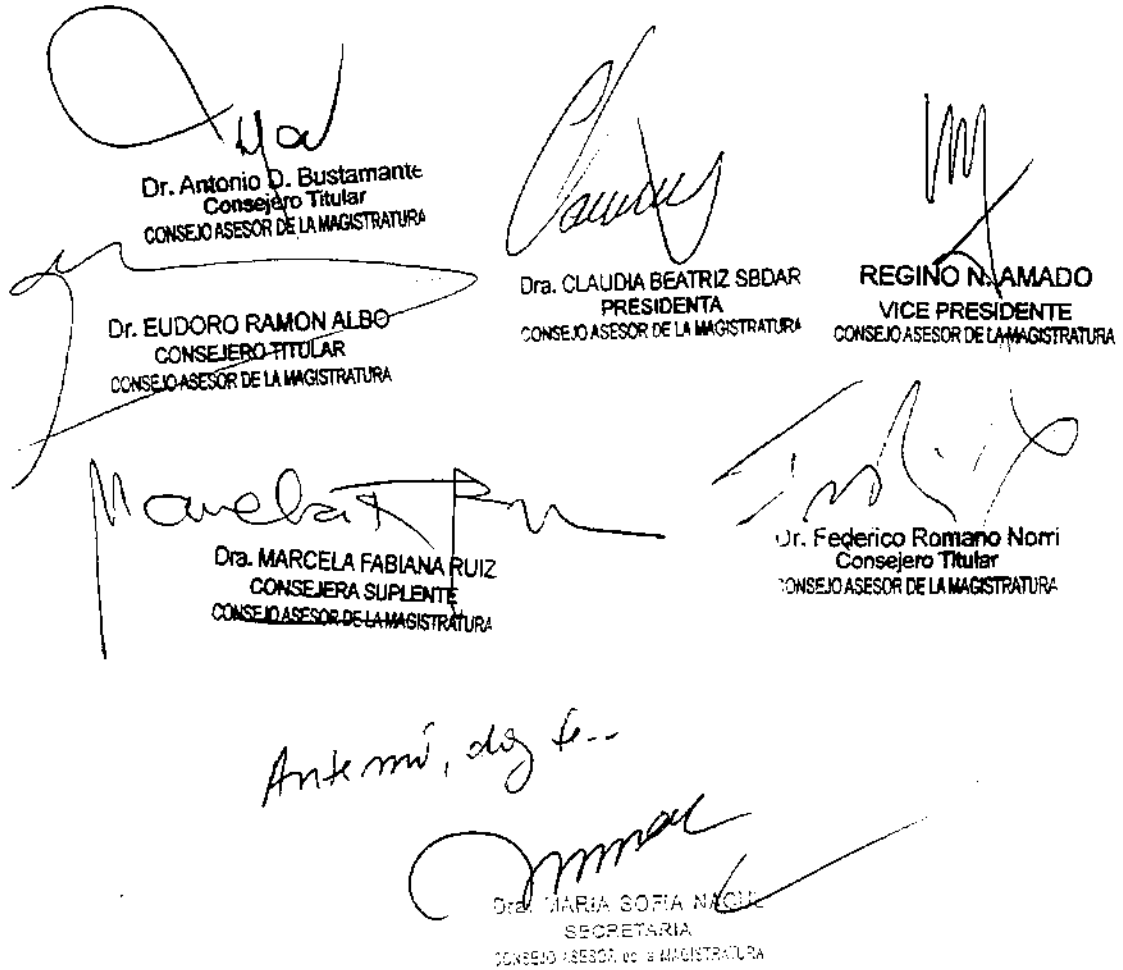 Dr. Antonio D. Bustamante
Consejero Titular
CONSEJO ASESOR DE LA MAGISTRATURA
Dra. CLAUDIA BEATRIZ SBDAR
PRESIDENTA
CONSEJO ASESOR DE LA MAGISTRATURA
REGINO N. AMADO
VICE PRESIDENTE
CONSEJO ASESOR DE LA MAGISTRATURA
Dr. EUDORO RAMON ALBO
CONSEJERO TITULAR
CONSEJO ASESOR DE LA MAGISTRATURA
Marcela F R
Dra. MARCELA FABIANA RUIZ
CONSEJERA SUPLENTE
CONSEJO ASESOR DE LA MAGISTRATURA
Dr. Federico Romano Norri
Consejero Titular
CONSEJO ASESOR DE LA MAGISTRATURA
Ante mí, doy fe..
Dra. MARIA SOFIA NACUL
SECRETARIA
CONSEJO ASESOR de la MAGISTRATURA